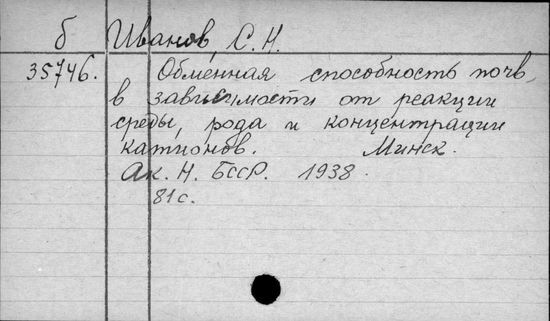 б Иванов, С. Н.
35746. Обменная способность почв,
в зависимости от реакции
среды, рода и концентрации
катионов. Минск.
Ак. Н. БССР. 1938.
81 с.